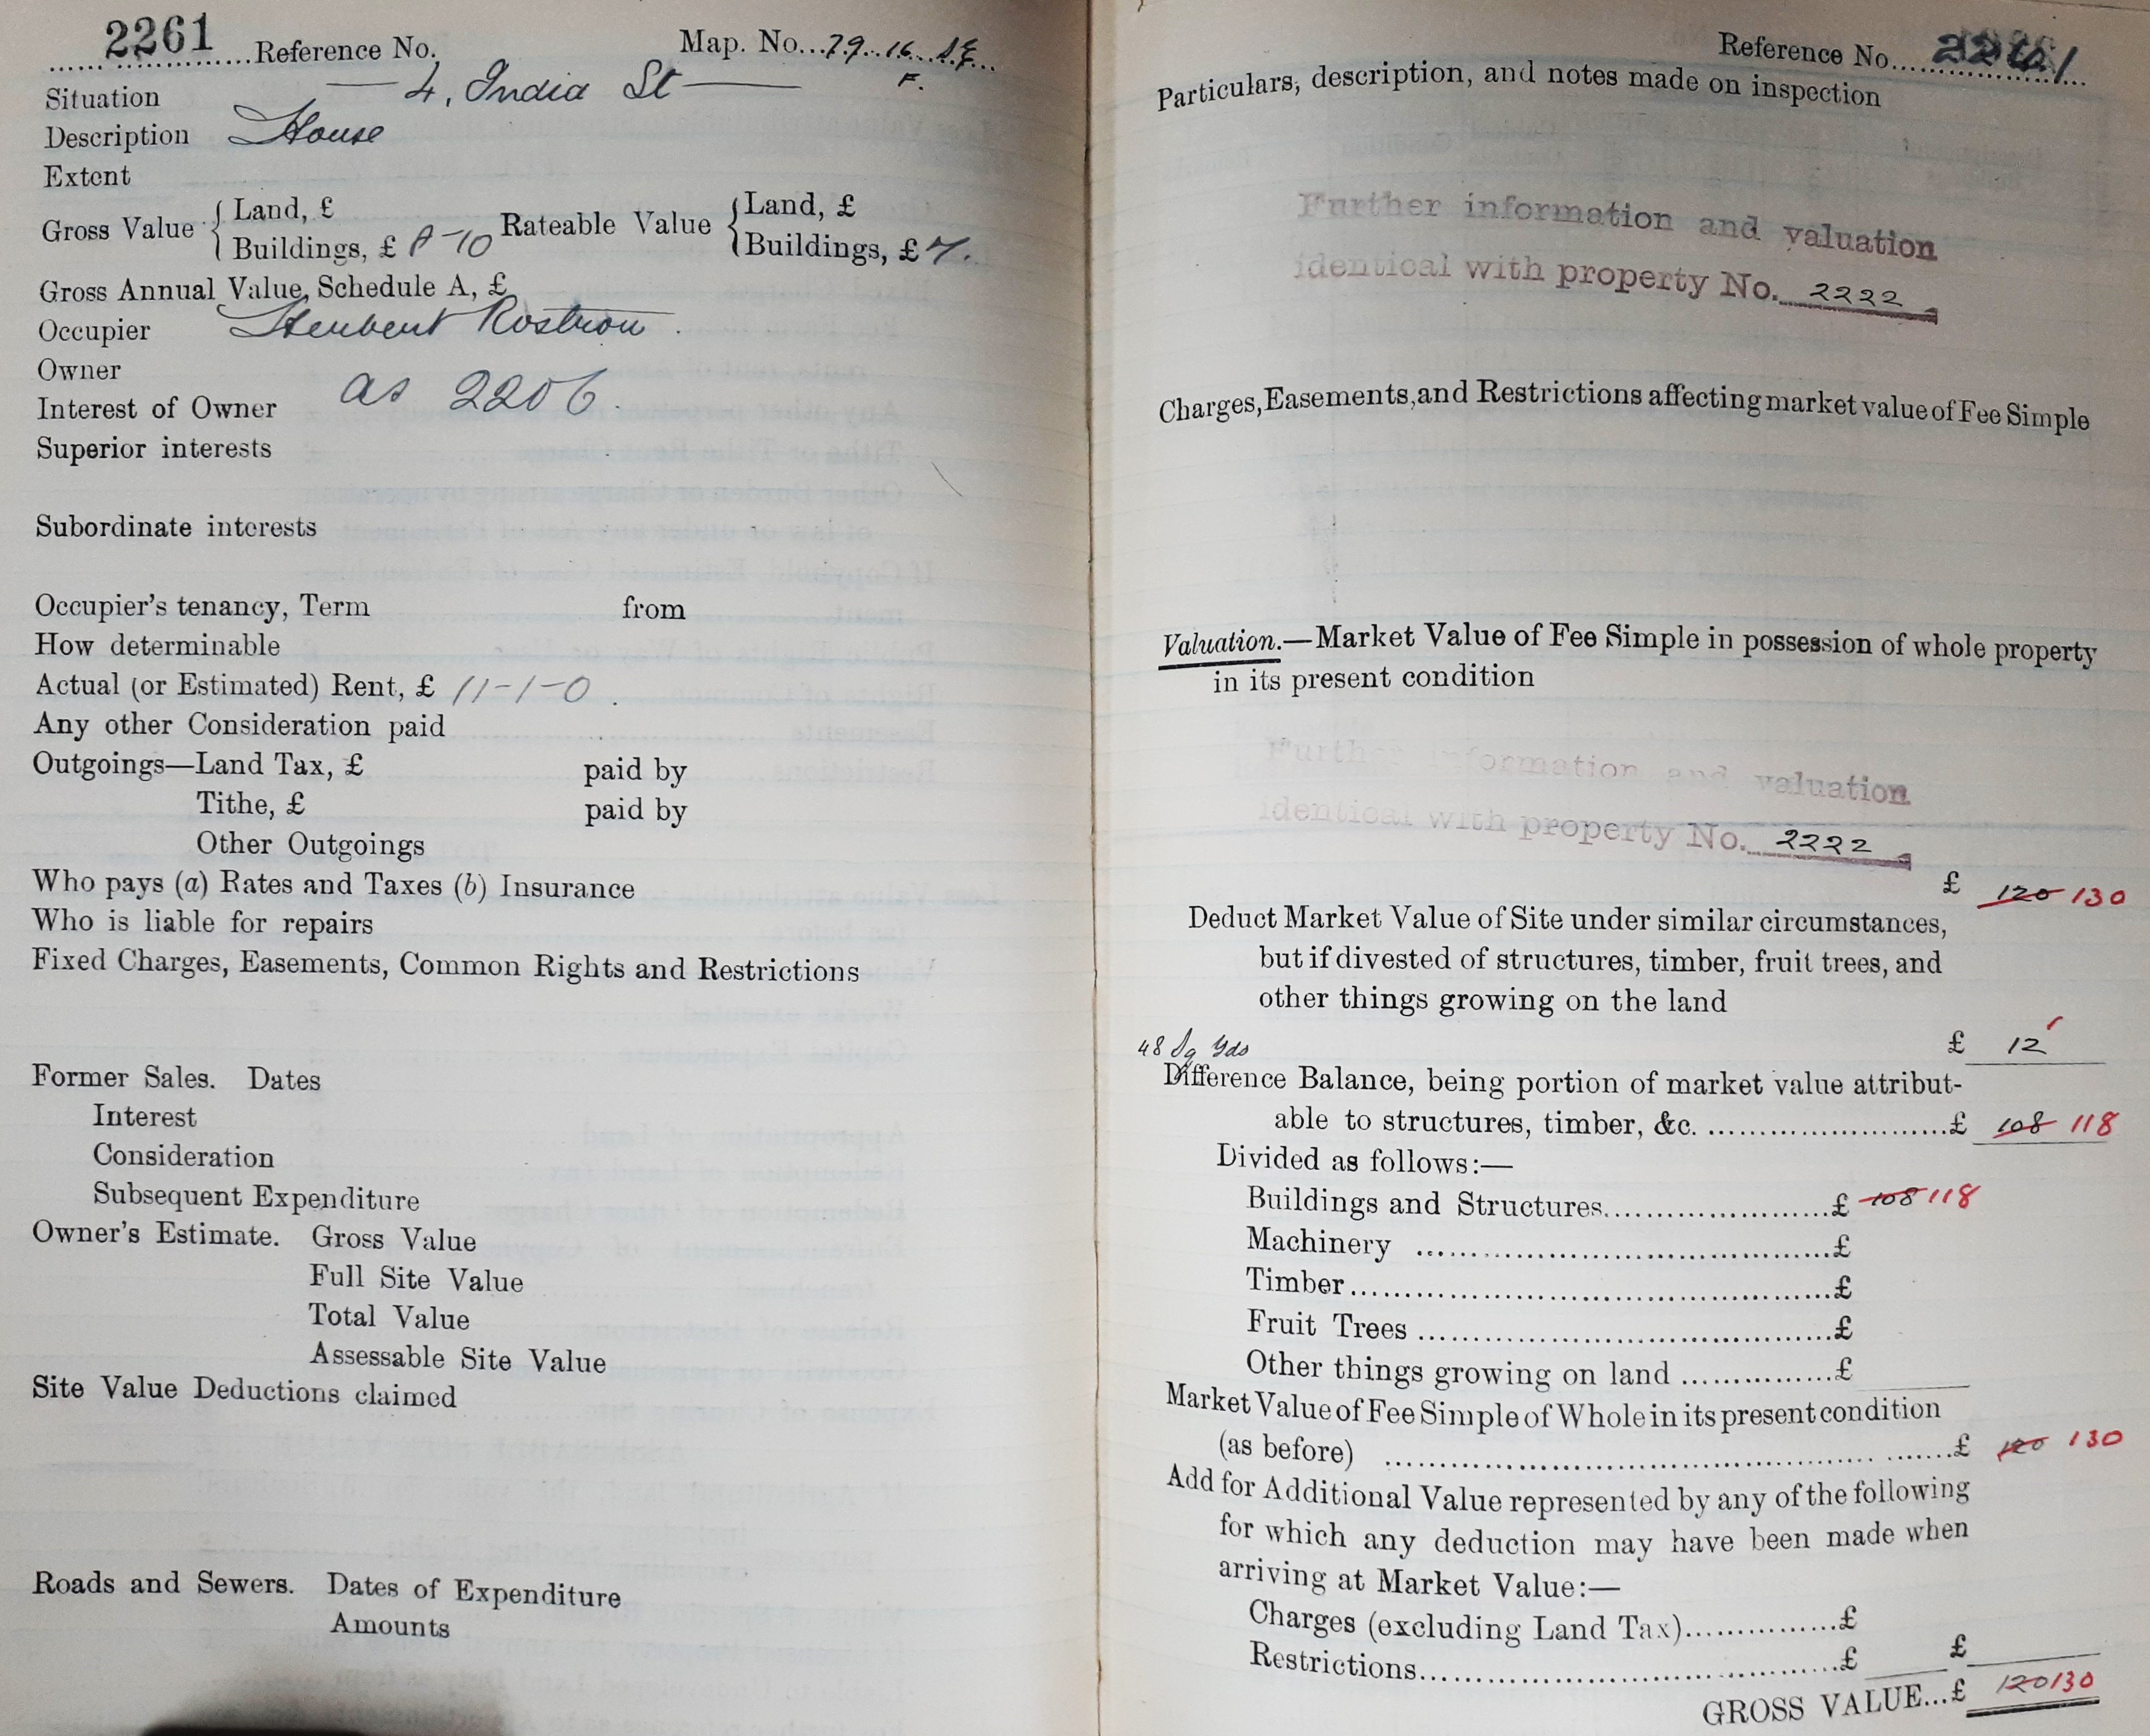 2261 Reference No. Map. No. 79.16.S.E.
F.
Situation 4, India St
Description House
Extent
Gross Value { Land, £ Rateable Value { Land, £
Buildings, £ 8-10 Buildings, £ 7.
Gross Annual Value, Schedule A, £
Occupier Herbert Rostron.
Owner
Interest of Owner as 2206.
Superior interests
Subordinate interests
Occupier's tenancy, Term from
How determinable
Actual (or Estimated) Rent, £ 11-1-0.
Any other Consideration paid
Outgoings—Land Tax, £ paid by
Tithe, £ paid by
Other Outgoings
Who pays (a) Rates and Taxes (b) Insurance
Who is liable for repairs
Fixed Charges, Easements, Common Rights and Restrictions
Former Sales. Dates
Interest
Consideration
Subsequent Expenditure
Owner's Estimate. Gross Value
Full Site Value
Total Value
Assessable Site Value
Site Value Deductions claimed
Roads and Sewers. Dates of Expenditure
Amounts
Reference No. 2261
Particulars, description, and notes made on inspection
Further information and valuation
identical with property No. 2222
Charges, Easements, and Restrictions affecting market value of Fee Simple
Valuation.—Market Value of Fee Simple in possession of whole property
in its present condition
Further information and valuation
identical with property No. 2222
£ 120 130
Deduct Market Value of Site under similar circumstances,
but if divested of structures, timber, fruit trees, and
other things growing on the land
48 Sq Yds £ 12
Difference Balance, being portion of market value attribut-
able to structures, timber, &c. £ 108 118
Divided as follows:—
Buildings and Structures £ 108 118
Machinery £
Timber £
Fruit Trees £
Other things growing on land £
Market Value of Fee Simple of Whole in its present condition
(as before) £ 120 130
Add for Additional Value represented by any of the following
for which any deduction may have been made when
arriving at Market Value:—
Charges (excluding Land Tax) £
Restrictions £ £
GROSS VALUE...£ 120 130